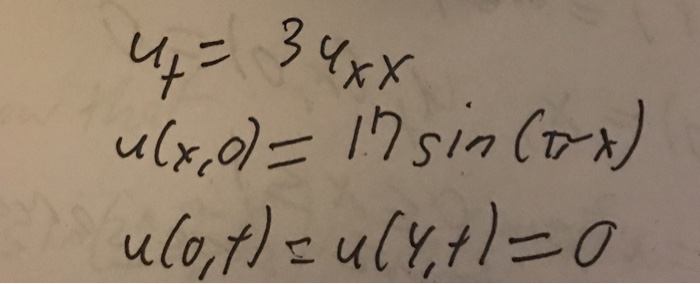 u_t = 3u_xx
u(x,0) = 17 sin(πx)
u(0,t) = u(4,t) = 0